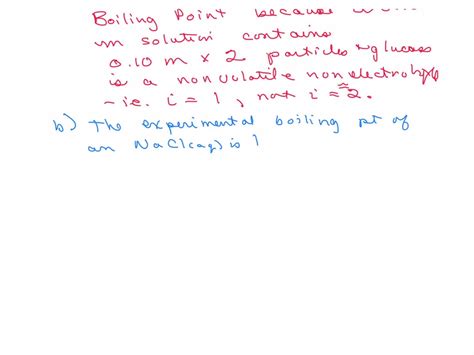 Boiling Point because
m solution contains
0.10 m x 2 particles & glucose
is a nonvolatile nonelectrolyte
- ie. i = 1, not i = 2.
b) The experimental boiling pt of
an NaCl(aq) is 1